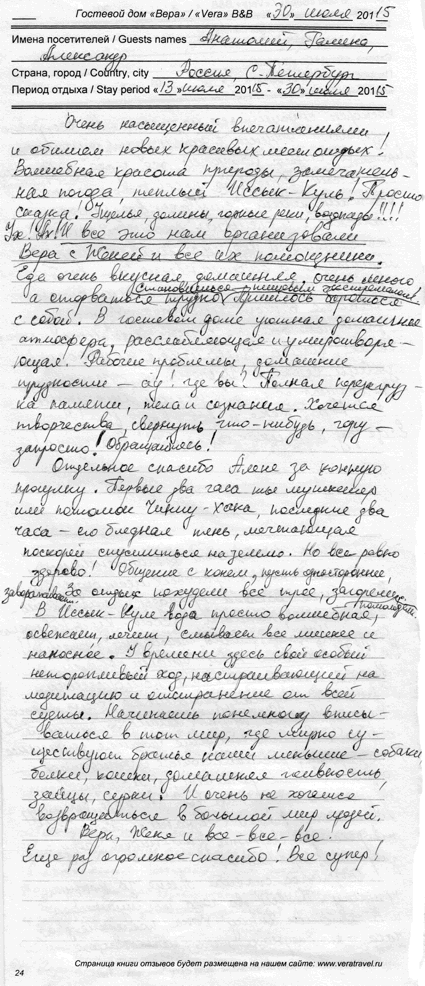 Гостевой дом «Вера» / «Vera» B&B «30» июля 2015
Имена посетителей / Guests names Анатолий, Галина,
Александр
Страна, город / Country, city Россия, С-Петербург
Период отдыха / Stay period «13» июля 2015 - «30» июля 2015
Очень насыщенный впечатлениями,
и обилием новых красивых мест отдых!
Волшебная красота природы, замечатель-
ная погода, теплый Иссык-Куль! Просто
сказка! Ущелья, долины, горные реки, водопады!!!!
Ух! Ах! И все это нам организовали
Вера с Женей и все их помощники.
Еда очень вкусная, домашняя, очень много
становишься пищевым экстремалом!
а оторваться трудно, пришлось бороться
с собой. В гостевом доме уютная домашнее
атмосфера, расслабляющая и умиротворя-
ющая. Рабочие проблемы, домашние
трудности – ау! где вы? Полная перезагруз-
ка памяти, тела и сознания. Хочется
творчества, свернуть что-нибудь, гору –
запросто! Обращайтесь!
Отдельное спасибо Алене за конную
прогулку. Первые два часа ты мушкетер
или потомок Чингиз-хана, последние два
часа – его бледная тень, мечтающая
поскорей спуститься на землю. Но все равно
здорово! Общение с конем, пусть одностороннее,
завораживает. За отдых похудели все трое, загорели,
помолодели.
В Иссык-Куле вода просто волшебная,
освежает, лечит, смывает все мелкое и
наносное. У времени здесь свой особый
неторопливый ход, настраивающий на
медитацию и отстранение от всей
суеты. Начинаешь понемногу вписы-
ваться в тот мир, где мирно су-
ществуют братья наши меньшие – собаки,
белки, кошки, домашняя живность,
зайцы, сурки. И очень не хочется
возвращаться в большой мир людей.
Вера, Женя и все-все-все!
Еще раз огромное спасибо! Все супер!
Страница книги отзывов будет размещена на нашем сайте: www.veratravel.ru
24